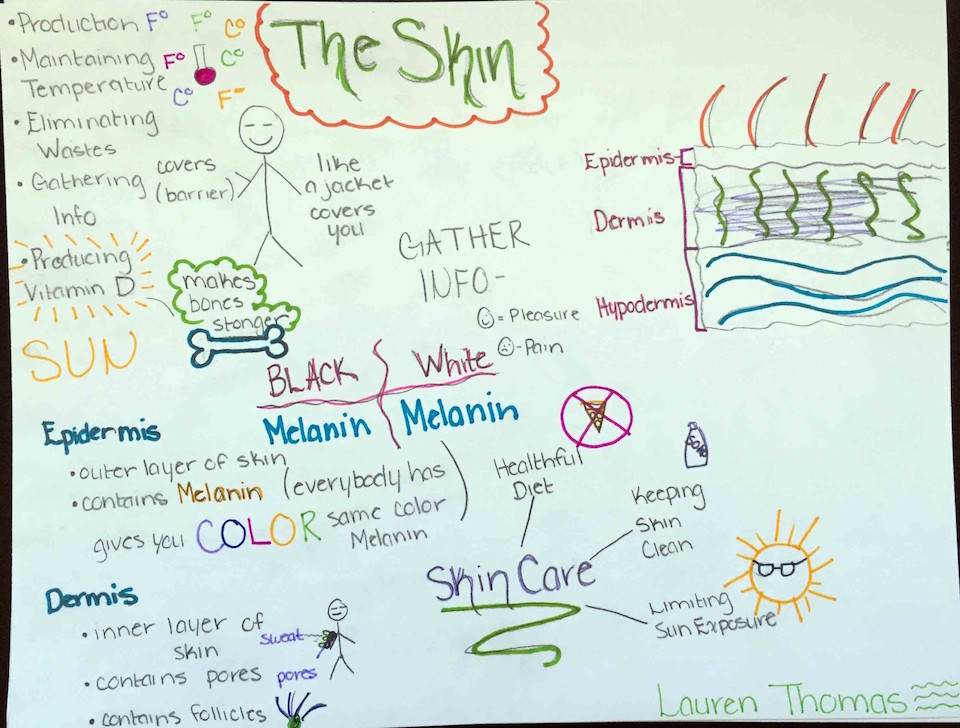 The Skin
• Production F° F° C°
• Maintaining F° C°
Temperature C° F°
• Eliminating
Wastes
• Gathering
Info
covers
(barrier)
like
a jacket
covers
you
• Producing
Vitamin D
SUN
makes
bones
stonger
GATHER
INFO-
= Pleasure
-Pain
Epidermis
Dermis
Hypodermis
BLACK White
Melanin Melanin
Epidermis
• outer layer of skin
• contains Melanin (everybody has
gives you COLOR same color
Melanin)
Dermis
• inner layer of
skin
• contains pores
• contains follicles
sweat
pores
Healthful
Diet
SOAP
Keeping
Skin
Clean
Skin Care
Limiting
Sun Exposure
Lauren Thomas